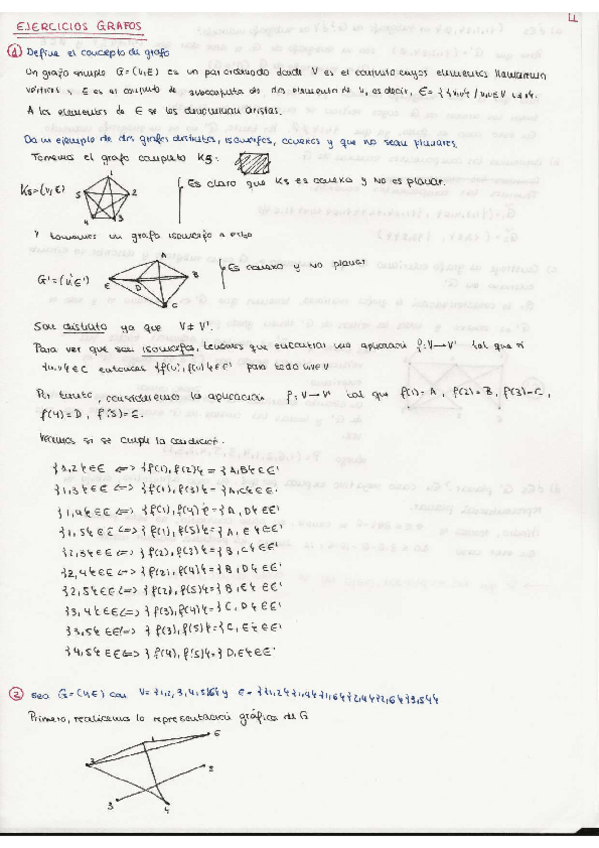 EJERCICIOS GRAFOS
1 Define el concepto de grafo
Un grafo simple G=(V,E) es un par ordenado donde V es el conjunto cuyos elementos llamaremos
vértices y E es el conjunto de subconjuntos de dos elementos de V, es decir, E={{u,v}/u,v∈V
A los elementos de E se les denominan aristas.
Da un ejemplo de dos grafos distintos, isomorfos, conexos y que no sean planares.
Tomemos el grafo completo K5:
K5=(V,E)
1
2
3
4
5
Es claro que K5 es conexo y no es planar.
Y tomemos un grafo isomorfo a
G'=(V',E')
A
B
C
D
E
Es conexo y no planar
Son distintos ya que V≠V'.
Para ver que son isomorfos, tenemos que encontrar una aplicación f:V→V' tal que si
{u,v}∈E entonces {f(u),f(v)}∈E' para todo u,v∈V
Por tanto, consideremos la aplicación f:V→V' tal que f(1)=A, f(2)=B, f(3)=C,
f(4)=D, f(5)=E.
Veamos si se cumple la condición.
{1,2}∈E <=> {f(1),f(2)}={A,B}∈E'
{1,3}∈E <=> {f(1),f(3)}={A,C}∈E'
{1,4}∈E <=> {f(1),f(4)}={A,D}∈E'
{1,5}∈E <=> {f(1),f(5)}={A,E}∈E'
{2,3}∈E <=> {f(2),f(3)}={B,C}∈E'
{2,4}∈E <=> {f(2),f(4)}={B,D}∈E'
{2,5}∈E <=> {f(2),f(5)}={B,E}∈E'
{3,4}∈E <=> {f(3),f(4)}={C,D}∈E'
{3,5}∈E <=> {f(3),f(5)}={C,E}∈E'
{4,5}∈E <=> {f(4),f(5)}={D,E}∈E'
2 Sea G=(V,E) con V={1,2,3,4,5,6} y E={{1,2}{1,4}{1,6}{2,4}{2,6}{3,5}}
Primero, realicemos la representación gráfica de G
1
6
2
3
4